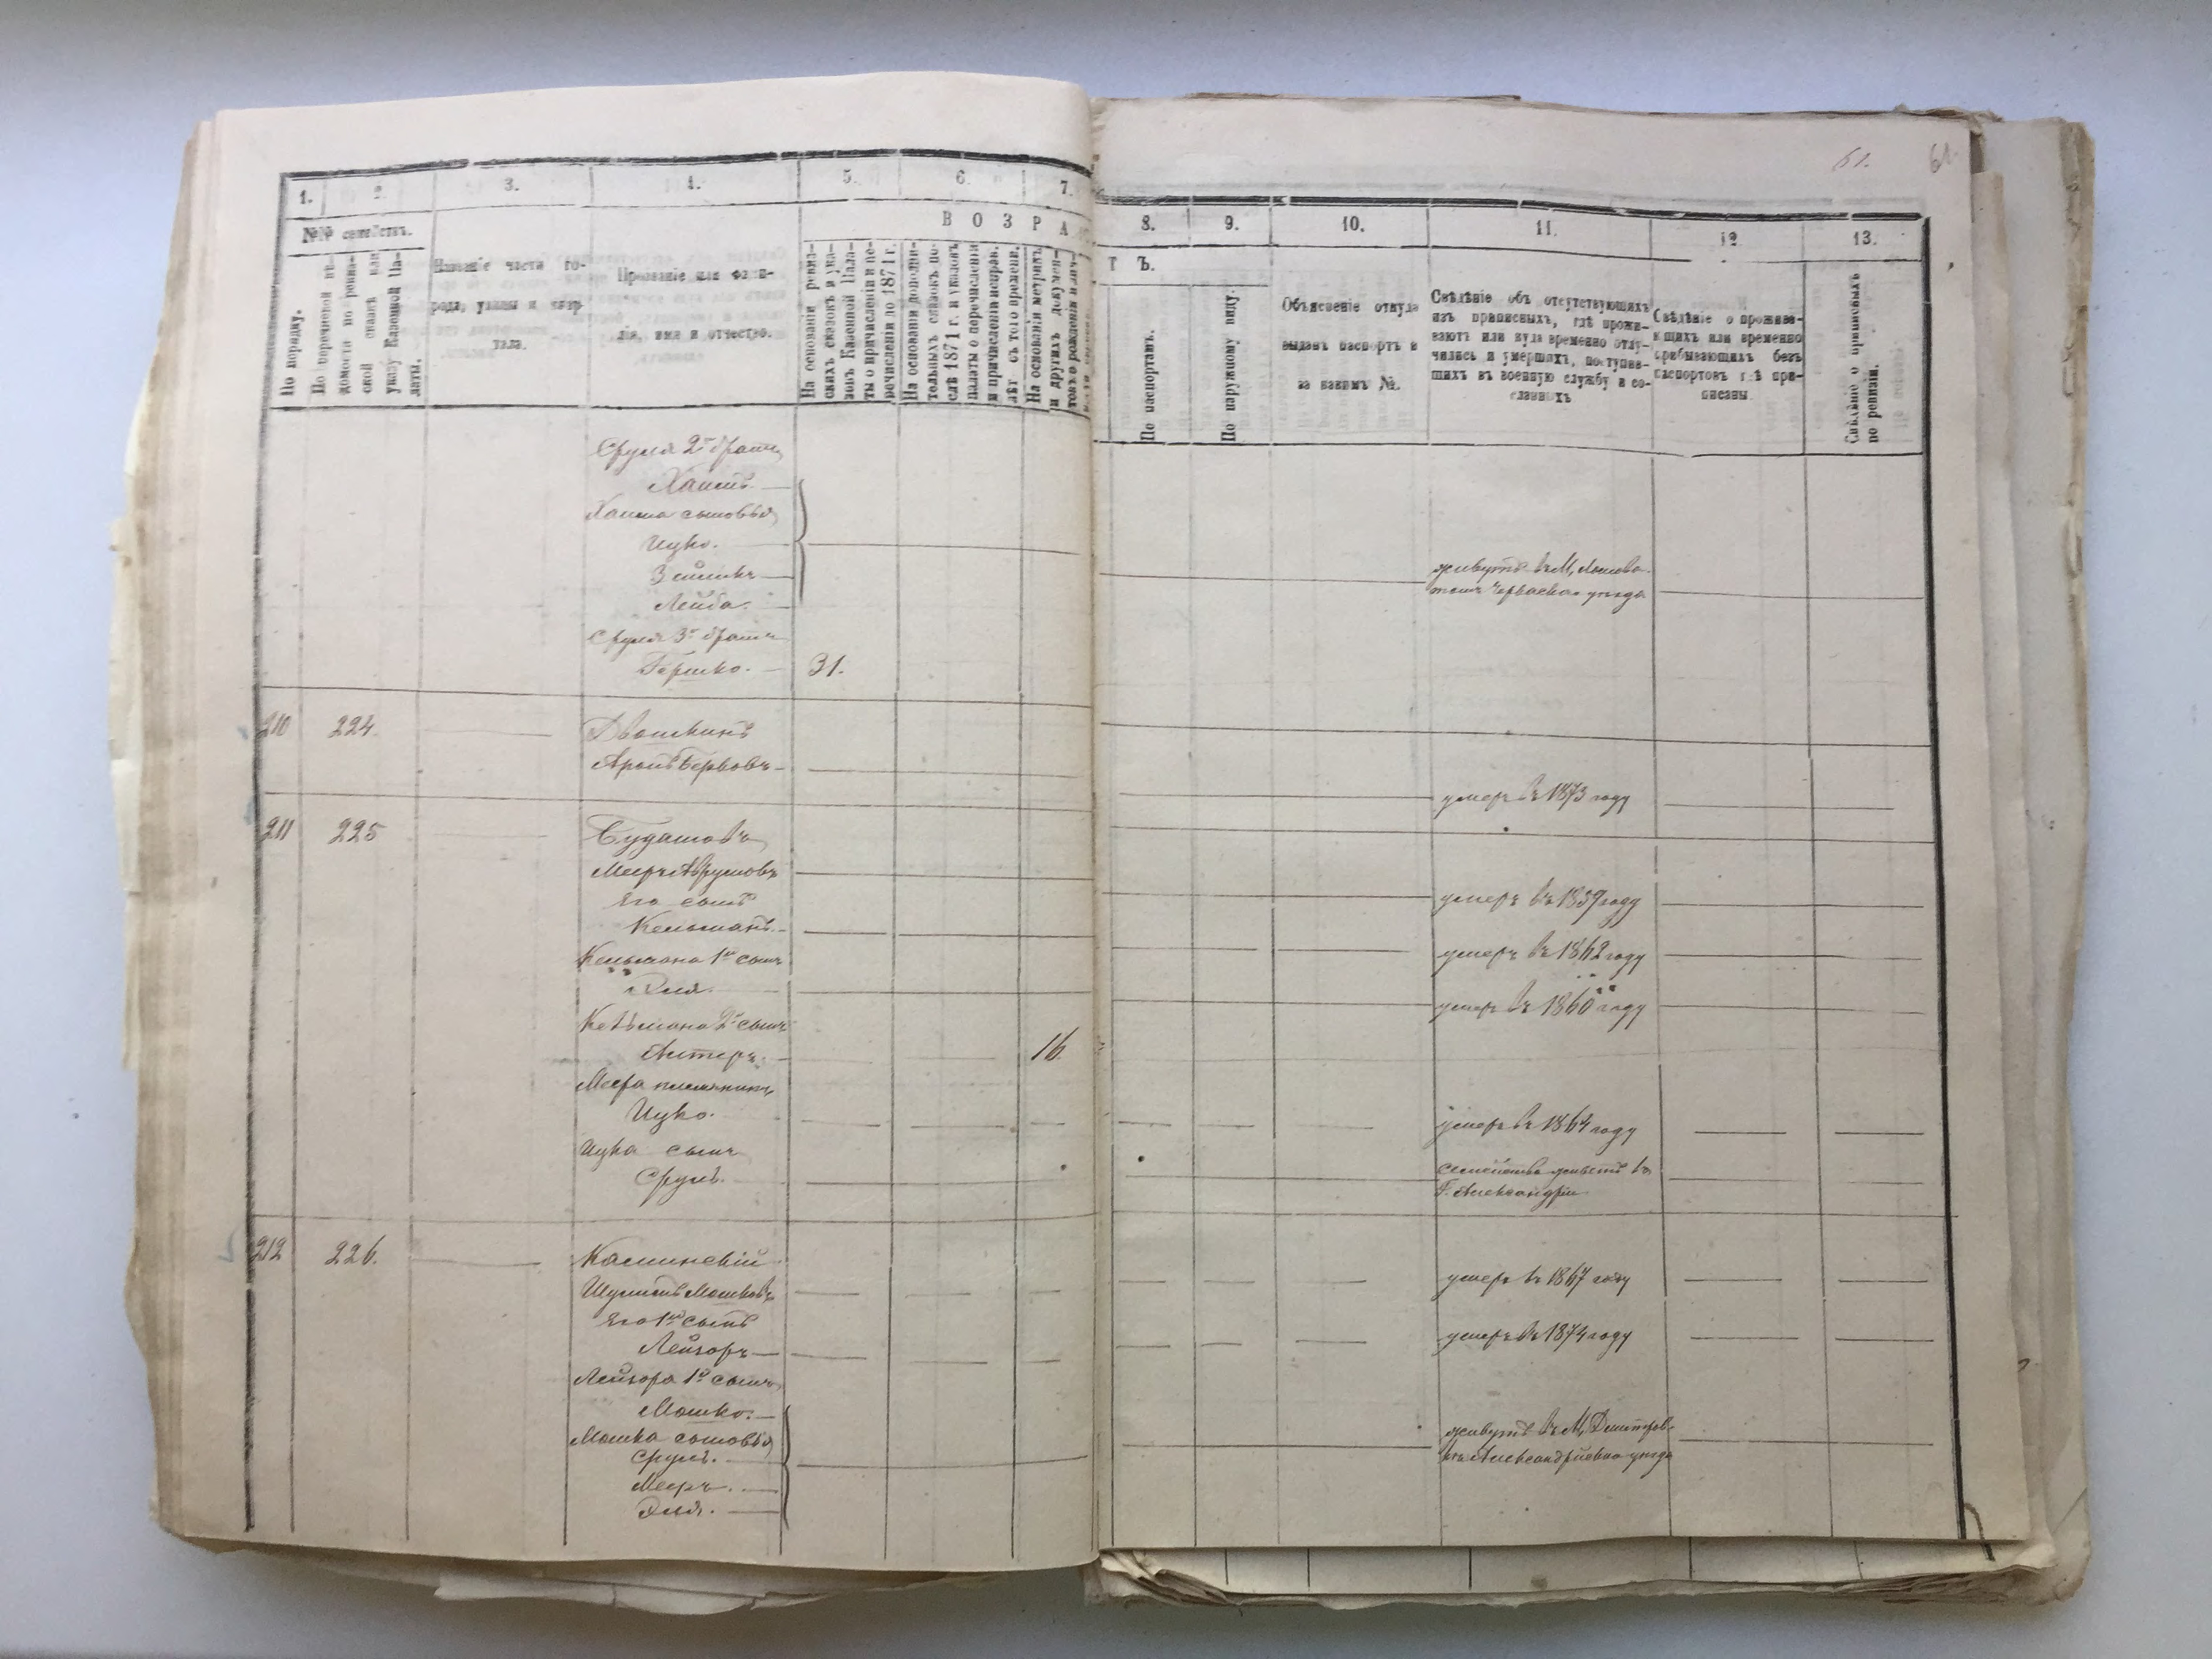 61. 61
1. 2. 3. 4. 5. 6. 7.
8. 9. 10. 11. 12 13.
№№ семействъ.
В О З Р А
Т Ъ.
По порядку.
По перечневой вѣ-
домости по ревиз-
ской сказкѣ или
указу Казенной Па-
латы.
Названіе части го-
рода, улицы и квар-
тала.
Прозваніе или фами-
лія, имя и отчество.
На основаніи ревиз-
скихъ сказокъ и ука-
зовъ Казенной Пала-
ты о причисленіи и пе-
речисленіи до 1871 г.
На основаніи дополни-
тельныхъ сказокъ по-
слѣ 1871 г. и указовъ
палаты о перечисленіи
и причисленіи исправ.
лѣт съ того времени.
На основаніи метрикъ
и другихъ докумен-
товъ о рожденіи
По паспортамъ.
По наружному виду.
Объясненіе откуда
выданъ паспортъ и
за какимъ №.
Свѣдѣніе объ отсутствующихъ
изъ приписныхъ, гдѣ прожи-
ваютъ или куда временно отлу-
чились и умершихъ, поступив-
шихъ въ военную службу и со-
сланныхъ
Свѣдѣніе о прожива-
ющихъ или временно
прибывающихъ безъ
паспортовъ гдѣ при-
писаны
Свѣдѣніе о приписныхъ
по ревизіи.
Сруля 2й братъ
Хаимъ.
Хаима сыновья
Ицко.
Зейликъ
Лейба.
живутъ въ М,
уѣзда
Сруля 3й братъ
Гершко. 31.
210 224.
Аронъ Берковъ
умеръ въ 1873 году
211 225
Мееръ Аврумовъ
умеръ въ 1859 году
Его сынъ
Кельманъ.
умеръ въ 1862 году
Кельмана 1й сынъ
Эля.
умеръ въ 1860 году
Кельмана 2й сынъ
Антеръ. 16.
Меера племяникъ
Ицко.
умеръ въ 1864 году
Ицка сынъ
Срулъ.
семейство живетъ въ
Г. Александріи
212 226.
Каминскій
Шулимъ Мошковъ
умеръ въ 1867 году
Его 1й сынъ
Лейзоръ
умеръ въ 1874 году
Лейзора 1й сынъ
Мошко.
Мошка сыновья
Срулъ.
Мееръ.
Эля.
живутъ въ М, Дмитров-
кѣ Александрійскаго уѣзда